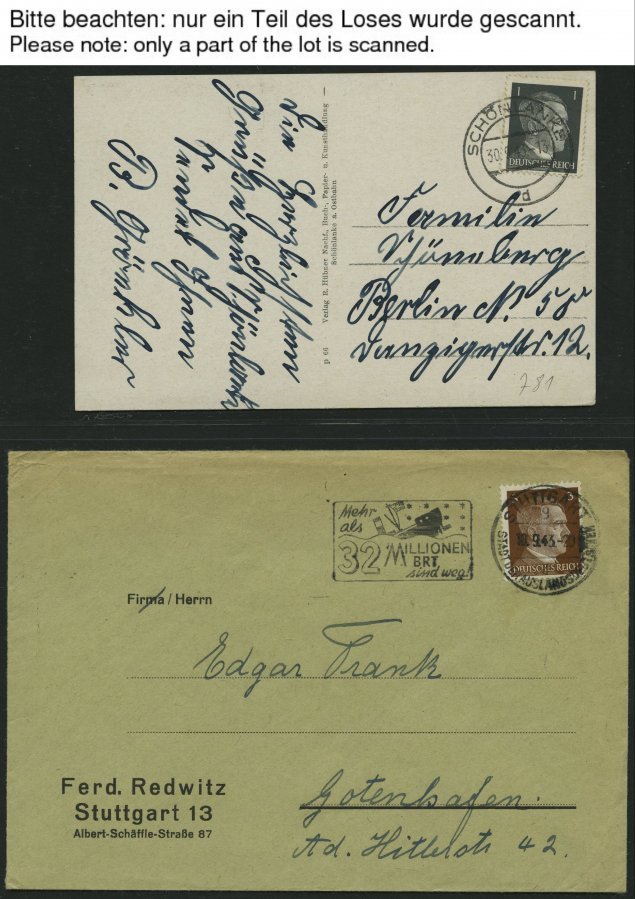 Bitte beachten: nur ein Teil des Loses wurde gescannt.
Please note: only a part of the lot is scanned.
SCHÖNLANKE
30.
d
1
DEUTSCHES REICH
Familie
Schöneberg
Berlin N. 58
Danzigerstr. 12.
781
p 66 Verlag R. Hübner Nachf., Buch-, Papier- u. Kunsthandlung –
Schönlanke a. Ostbahn
Die herzlichsten
Grüße
Ihnen
Mehr
als
32 MILLIONEN
BRT
sind weg!
STUTTGART
9
.9.43.-20
STADT DER AUSLANDSD
3
DEUTSCHES REICH
Firma / Herrn
Edgar Frank
Gotenhafen.
Ad. Hitlerstr 42.
Ferd. Redwitz
Stuttgart 13
Albert-Schäffle-Straße 87